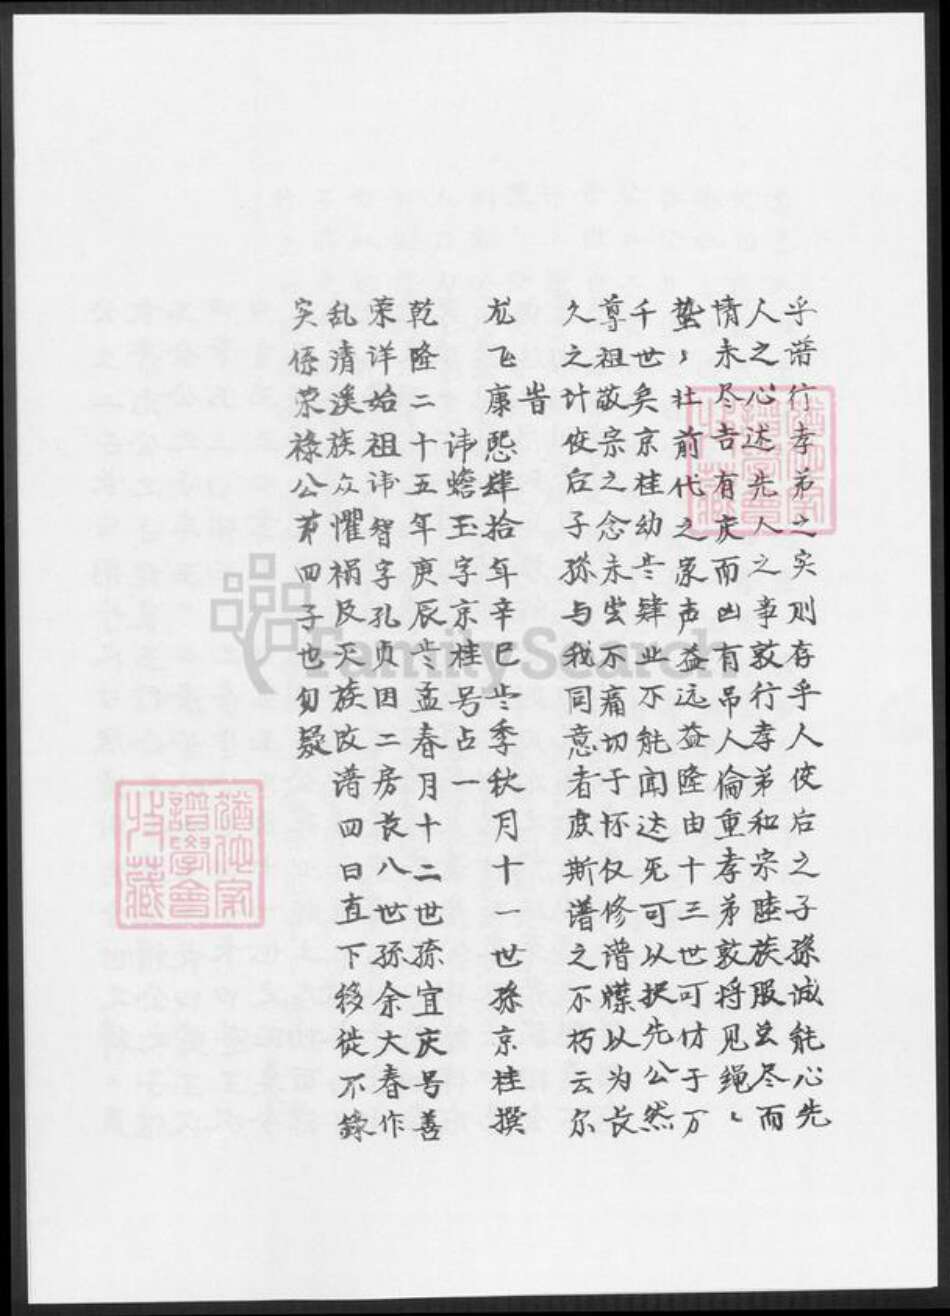 乎谱行孝弟之实则存乎人使后之子孫诚能心先
人之心述先人之事敦行孝弟和宗睦族服虽尽而
情未尽吉有庆而凶有吊人倫重孝弟敦将见绳〻
蛰〻社前代之家声益远益隆由十三世可付于万
千世矣京桂幼岁肄业不能闻达无可以扺先公然
尊祖敬宗之念未尝不痛切于怀仅修谱牒以为长
久之计使后子孫与我同意者庶斯谱之不朽云尔
旹
龙飞康熙肆拾年辛巳岁季秋月十一世孫京桂撰
讳蟾玉字京桂号占一
乾隆二十五年庚辰岁孟春月十二世孫宜庆号善
荣洋始祖讳智字孔贞因二房长八世孫余大春作
乱清溪族众懼禍及灭族改谱四曰直下移徙不錄
实係荣祿公第四子也勿疑
猶他家
譜學會
收藏
猶他家
譜學會
收藏
FamilySearch